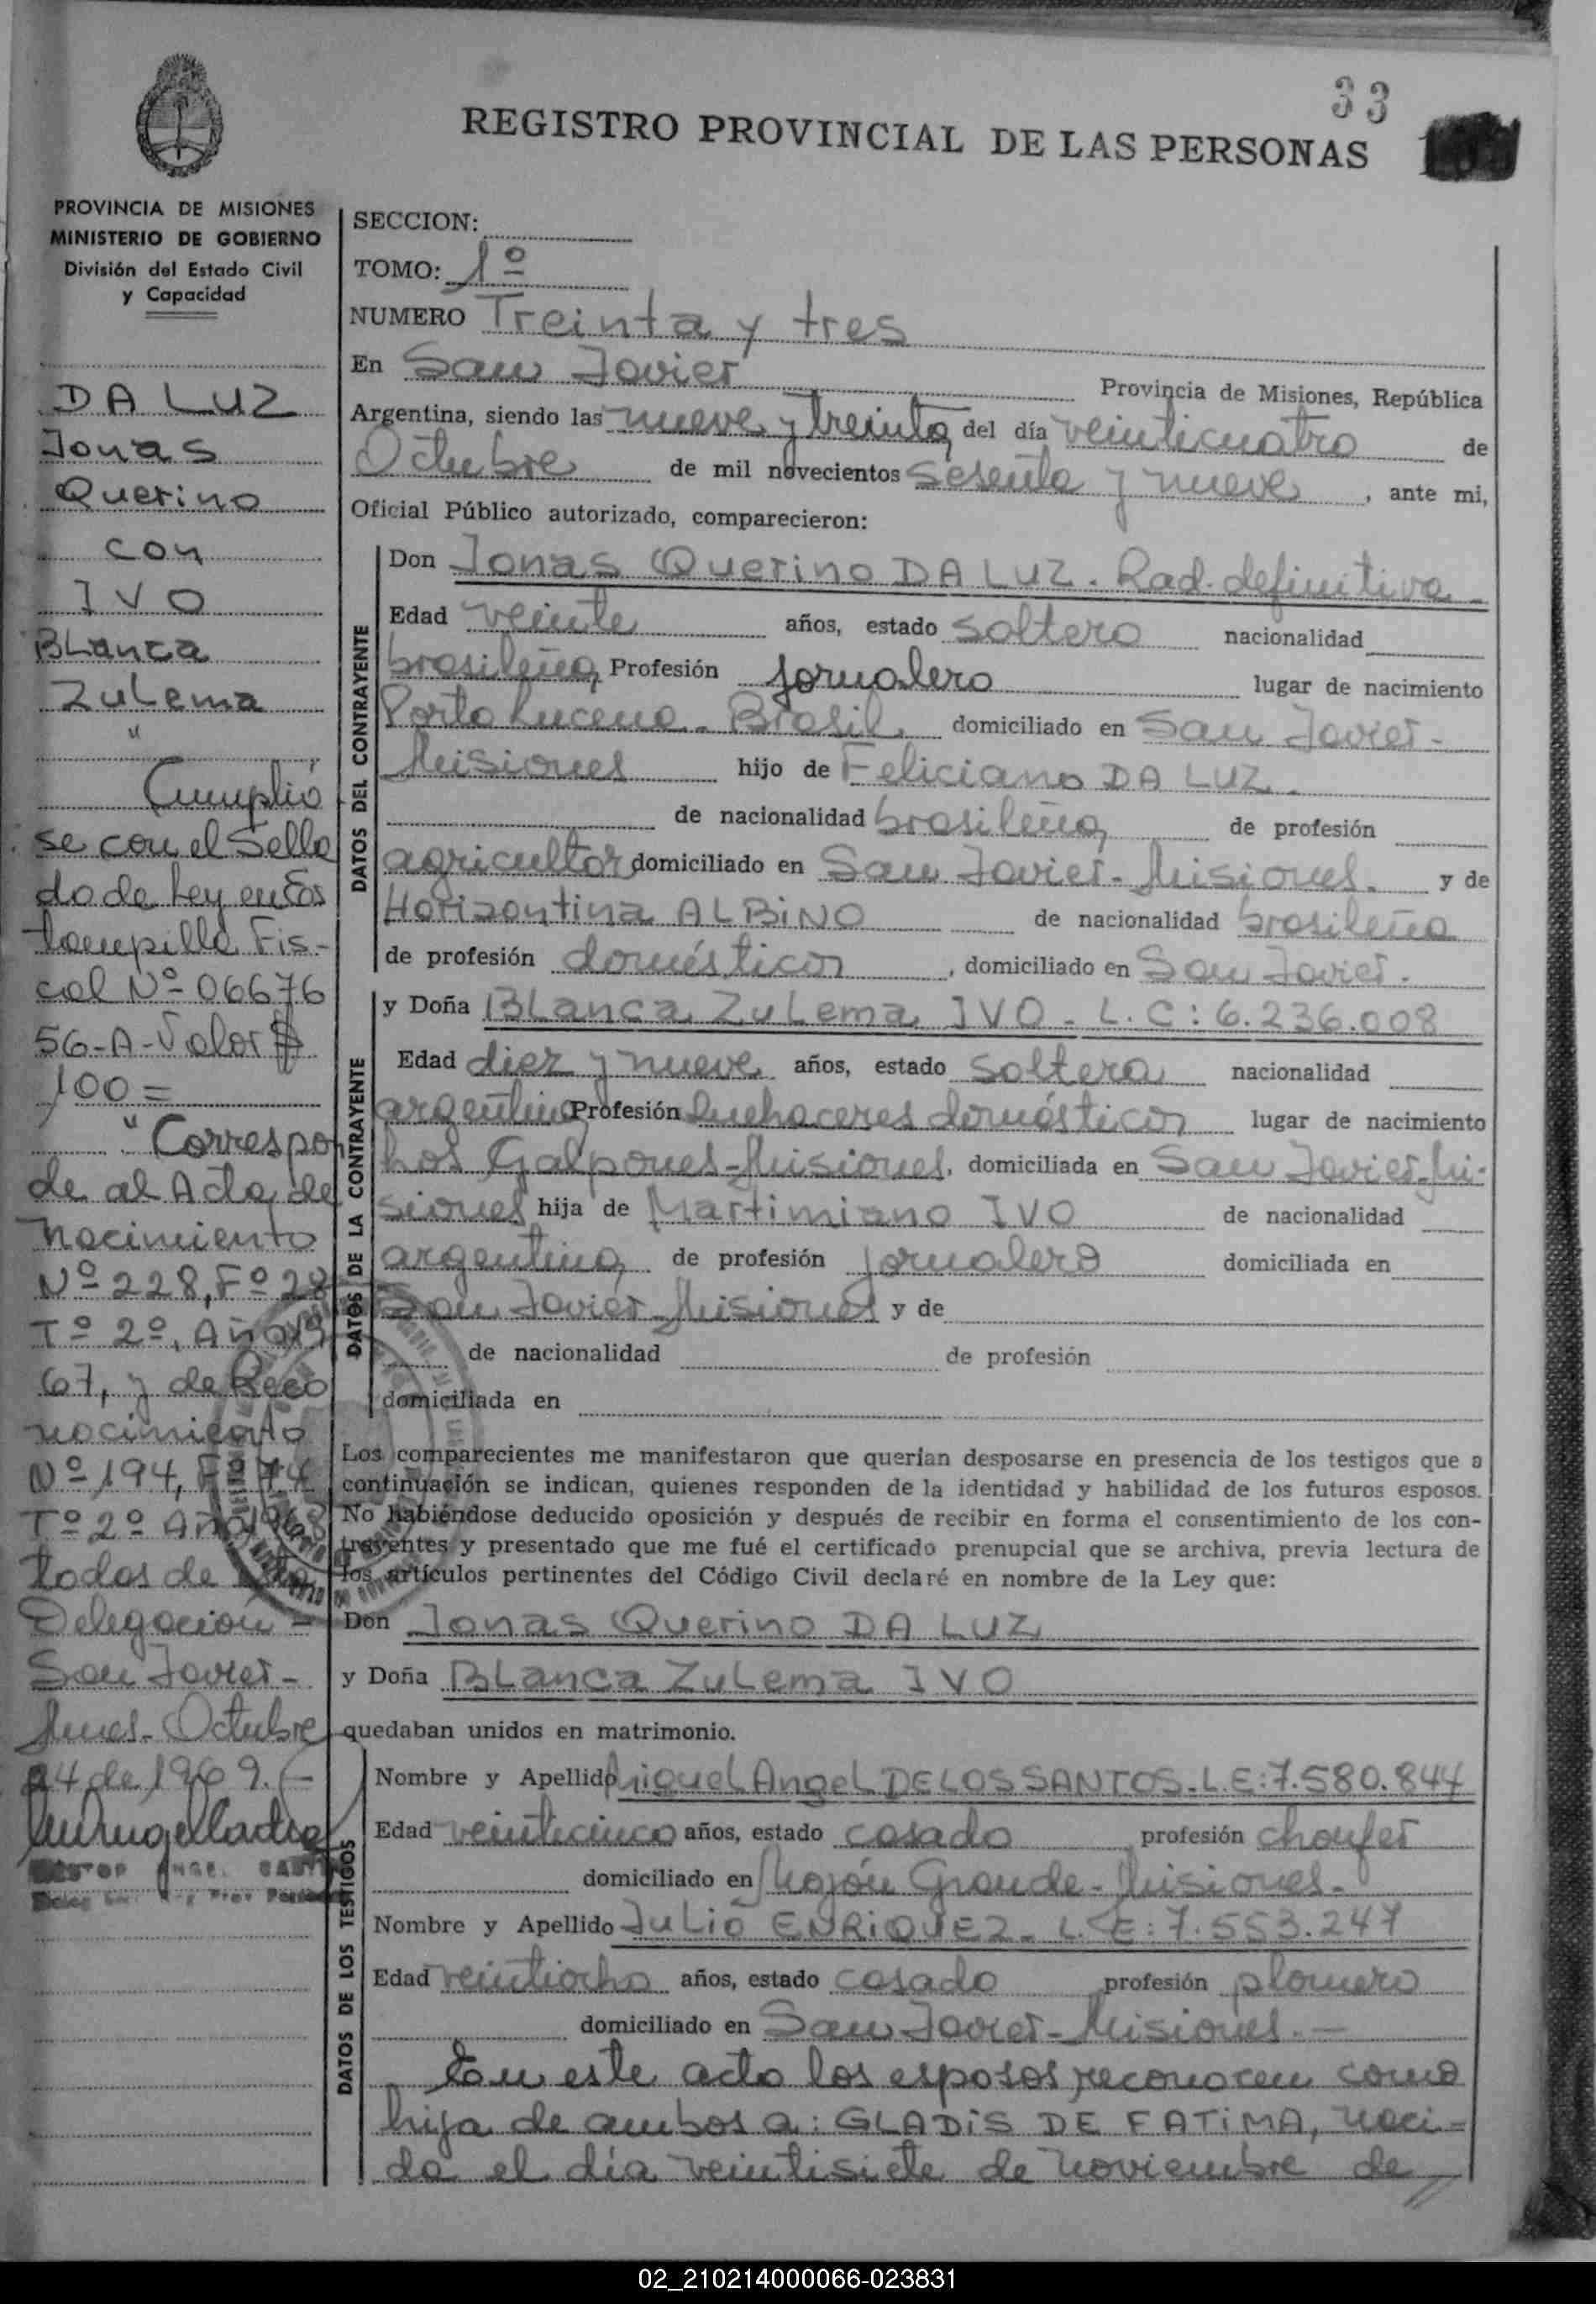 33
REGISTRO PROVINCIAL DE LAS PERSONAS
PROVINCIA DE MISIONES
MINISTERIO DE GOBIERNO
División del Estado Civil
y Capacidad
DA LUZ
Jonas
Querino
con
IVO
Blanca
Zulema
"
Cumplió
se con el Sella
do de Ley en Es
tampilla Fis-
cal Nº 06676
56-A-Valor $
100=
" Correspon
de al Acta de
Nacimiento
Nº 228, Fº 28
Tº 2º, Año 19
67, y de Reco
nocimiento
Nº 194, Fº 74
Tº 2º Año 1968
todos de
Delegación -
San Javier -
Mnes. Octubre
24 de 1969. -
SECCION:
TOMO: 1º
NUMERO Treinta y tres
En San Javier Provincia de Misiones, República
Argentina, siendo las nueve y treinta del día veinticuatro de
Octubre de mil novecientos sesenta y nueve, ante mi,
Oficial Público autorizado, comparecieron:
DATOS DEL CONTRAYENTE
Don Jonas Querino DA LUZ. Rad. definitiva
Edad veinte años, estado soltero nacionalidad
brasileña Profesión jornalero lugar de nacimiento
Porto Lucena - Brasil, domiciliado en San Javier -
Misiones hijo de Feliciano DA LUZ.
de nacionalidad brasileña de profesión
agricultor domiciliado en San Javier - Misiones. y de
Horizontina ALBINO de nacionalidad brasileña
de profesión doméstica, domiciliado en San Javier.
DATOS DE LA CONTRAYENTE
y Doña Blanca Zulema IVO - L.C: 6.236.008
Edad diez y nueve años, estado soltera nacionalidad
argentina Profesión quehaceres domésticos lugar de nacimiento
Los Galpones - Misiones, domiciliada en San Javier - Mi-
siones hija de Martimiano IVO de nacionalidad
argentina de profesión jornalero domiciliada en
San Javier - Misiones y de
de nacionalidad de profesión
domiciliada en
Los comparecientes me manifestaron que querían desposarse en presencia de los testigos que a
continuación se indican, quienes responden de la identidad y habilidad de los futuros esposos.
No habiéndose deducido oposición y después de recibir en forma el consentimiento de los con-
trayentes y presentado que me fué el certificado prenupcial que se archiva, previa lectura de
los artículos pertinentes del Código Civil declaré en nombre de la Ley que:
Don Jonas Querino DA LUZ
y Doña Blanca Zulema IVO
quedaban unidos en matrimonio.
DATOS DE LOS TESTIGOS
Nombre y Apellido Miguel Angel DE LOS SANTOS - L.E: 7.580.844
Edad veinticinco años, estado casado profesión choufer
domiciliado en Mojón Grande - Misiones.
Nombre y Apellido Julio ENRIQUEZ - L.E: 7.553.247
Edad veintiocho años, estado casado profesión plomero
domiciliado en San Javier - Misiones. -
En este acto los esposos reconocen como
hija de ambos a: GLADIS DE FATIMA, naci-
da el día veintisiete de noviembre de //
02_210214000066-023831